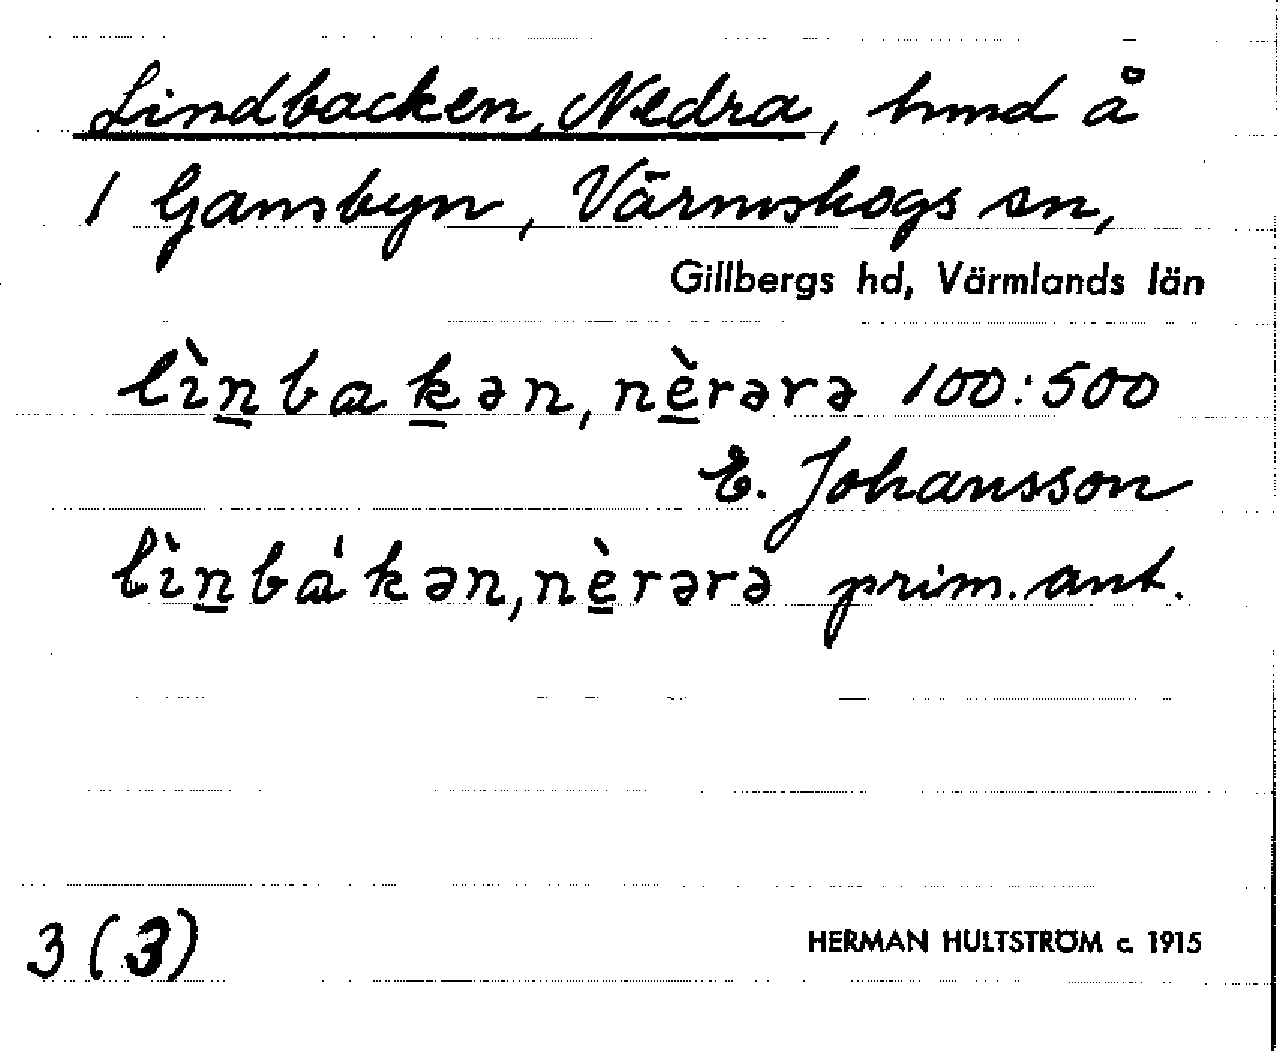 Lindbacken, Nedra, hmd å
1 Gamsbyn, Värmskogs sn,
Gillbergs hd, Värmlands län
lìn̲bak̲ən, nè̲rərə 100:500
E. Johansson
lìn̲bákən, nè̲rərə prim. ant.
3 (3)
HERMAN HULTSTRÖM c. 1915